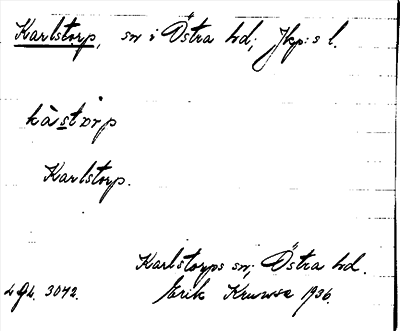 Karlstorp, sn i Östra hd; Jkp:s l.
kàstɷrp
Karlstorp.
Karlstorps sn; Östra hd.
Erik 1936.
3042.